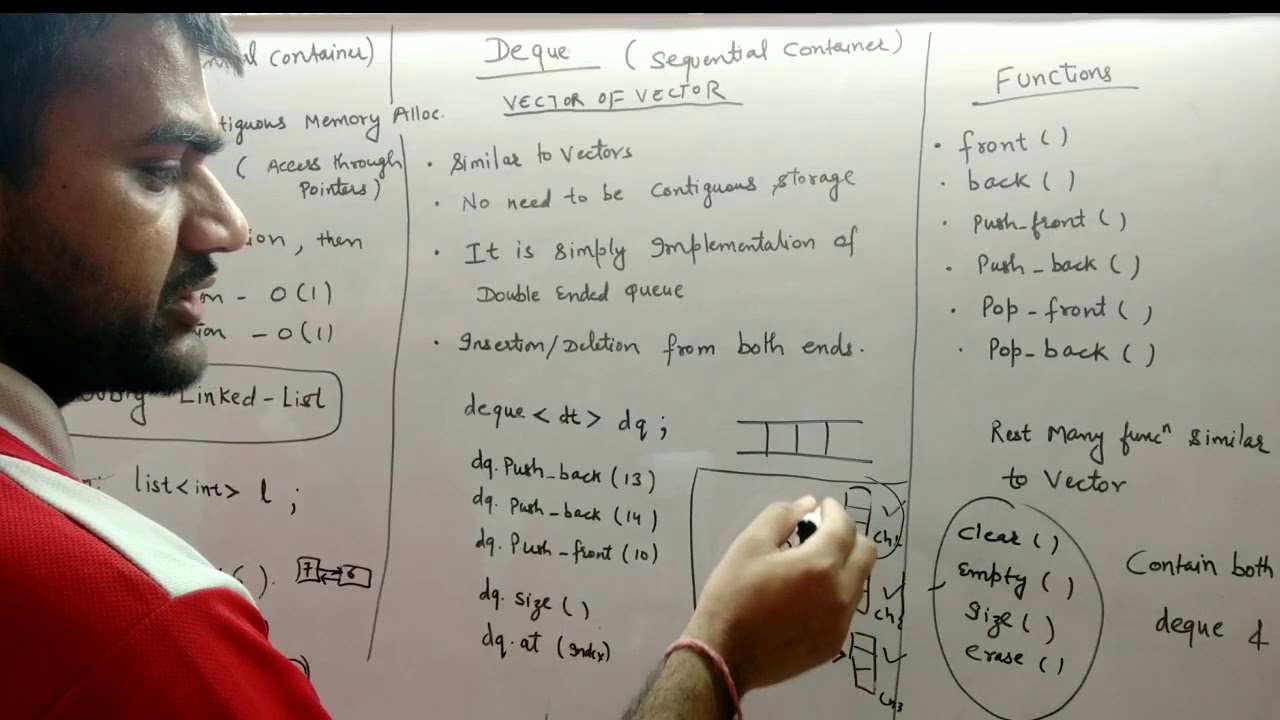 Container)
Memory Alloc.
( Access through
Pointers)
then
- O(1)
- O(1)
Linked-List
list<int> l ;
7 6
Deque ( Sequential Container)
VECTOR OF VECTOR
• Similar to Vectors
• No need to be Contiguous storage
• It is Simply Implementation of
Double Ended queue
• Insertion/Deletion from both ends.
deque < dt > dq ;
dq. Push_back (13)
dq. Push_back (14)
dq. Push_front (10)
dq. Size ( )
dq. at (Index)
Ch1
Ch2
Ch3
Functions
• front ( )
• back ( )
• Push_front ( )
• Push_back ( )
• Pop-front ( )
• Pop-back ( )
Rest Many funcⁿ Similar
to Vector
Clear ( )
Empty ( )
Size ( )
Erase ( )
Contain both
deque &